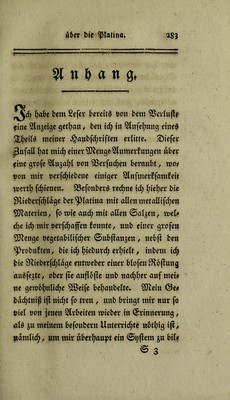 über die Platina. 283
Anhang.
Ich habe dem Leser bereits von dem Verluste
eine Anzeige gethan, den ich in Ansehung eines
Theils meiner Handschriften erlitte. Dieser
Zufall hat mich einer Menge Anmerkungen über
eine grose Anzahl von Versuchen beraubt, wo-
von mir verschiedene einiger Aufmerksamkeit
werth schienen. Besonders rechne ich hieher die
Niederschläge der Platina mit allen metallischen
Materien, so wie auch mit allen Salzen, wel-
che ich mir verschaffen konnte, und einer grosen
Menge vegetabilischer Substanzen, nebst den
Produkten, die ich hiedurch erhielt, indem ich
die Niederschläge entweder einer blosen Röstung
aussezte, oder sie auflöste und nachher auf mei-
ne gewöhnliche Weise behandelte. Mein Ge-
dächtniß ist nicht so treu, und bringt mir nur so
viel von jenen Arbeiten wieder in Erinnerung,
als zu meinem besondern Unterrichte nöthig ist,
nämlich, um mir überhaupt ein System zu bil-
S 3